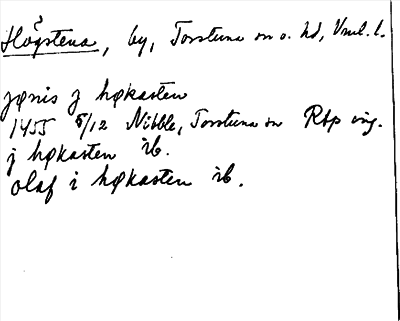 Högstena, by, Torstuna sn o. hd, Vml. l.
jønis j høkasten
1455 5/12 Nibble, Torstuna sn Rbp ing.
j høkasten ib.
olaf i høkasten ib.